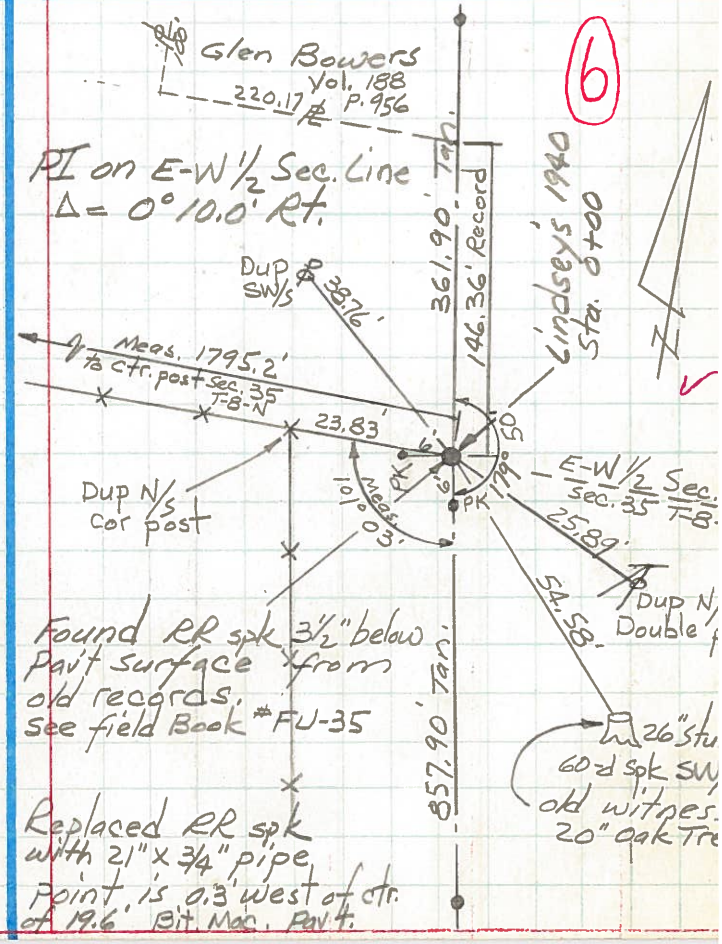 6
Glen Bowers
Vol. 188
220.17 P. 956
PI on E-W 1/2 Sec. Line
Δ = 0° 10.0' Rt.
361.90' Tan.
146.36' Record
Lindsey's 1940
Sta. 0+00
Dup
SW/s
38.76'
Meas. 1795.2'
to ctr. post Sec. 35
T-8-N
23.83'
6'
PK
6'
PK
179° 50'
Meas.
101° 03'
E-W 1/2 Sec.
Sec. 35 T-8-
25.89'
54.58'
Dup N/s
cor post
Dup N/
Double
Found RR spk 3 1/2" below
Pav't surface from
old records.
See field Book #FU-35
857.90' Tan.
26" Stu
60-d spk SW/
old witnes
20" Oak Tre
Replaced RR spk
with 21" x 3/4" pipe
Point is 0.3' west of ctr.
of 19.6' Bit. Mac. Pav't.